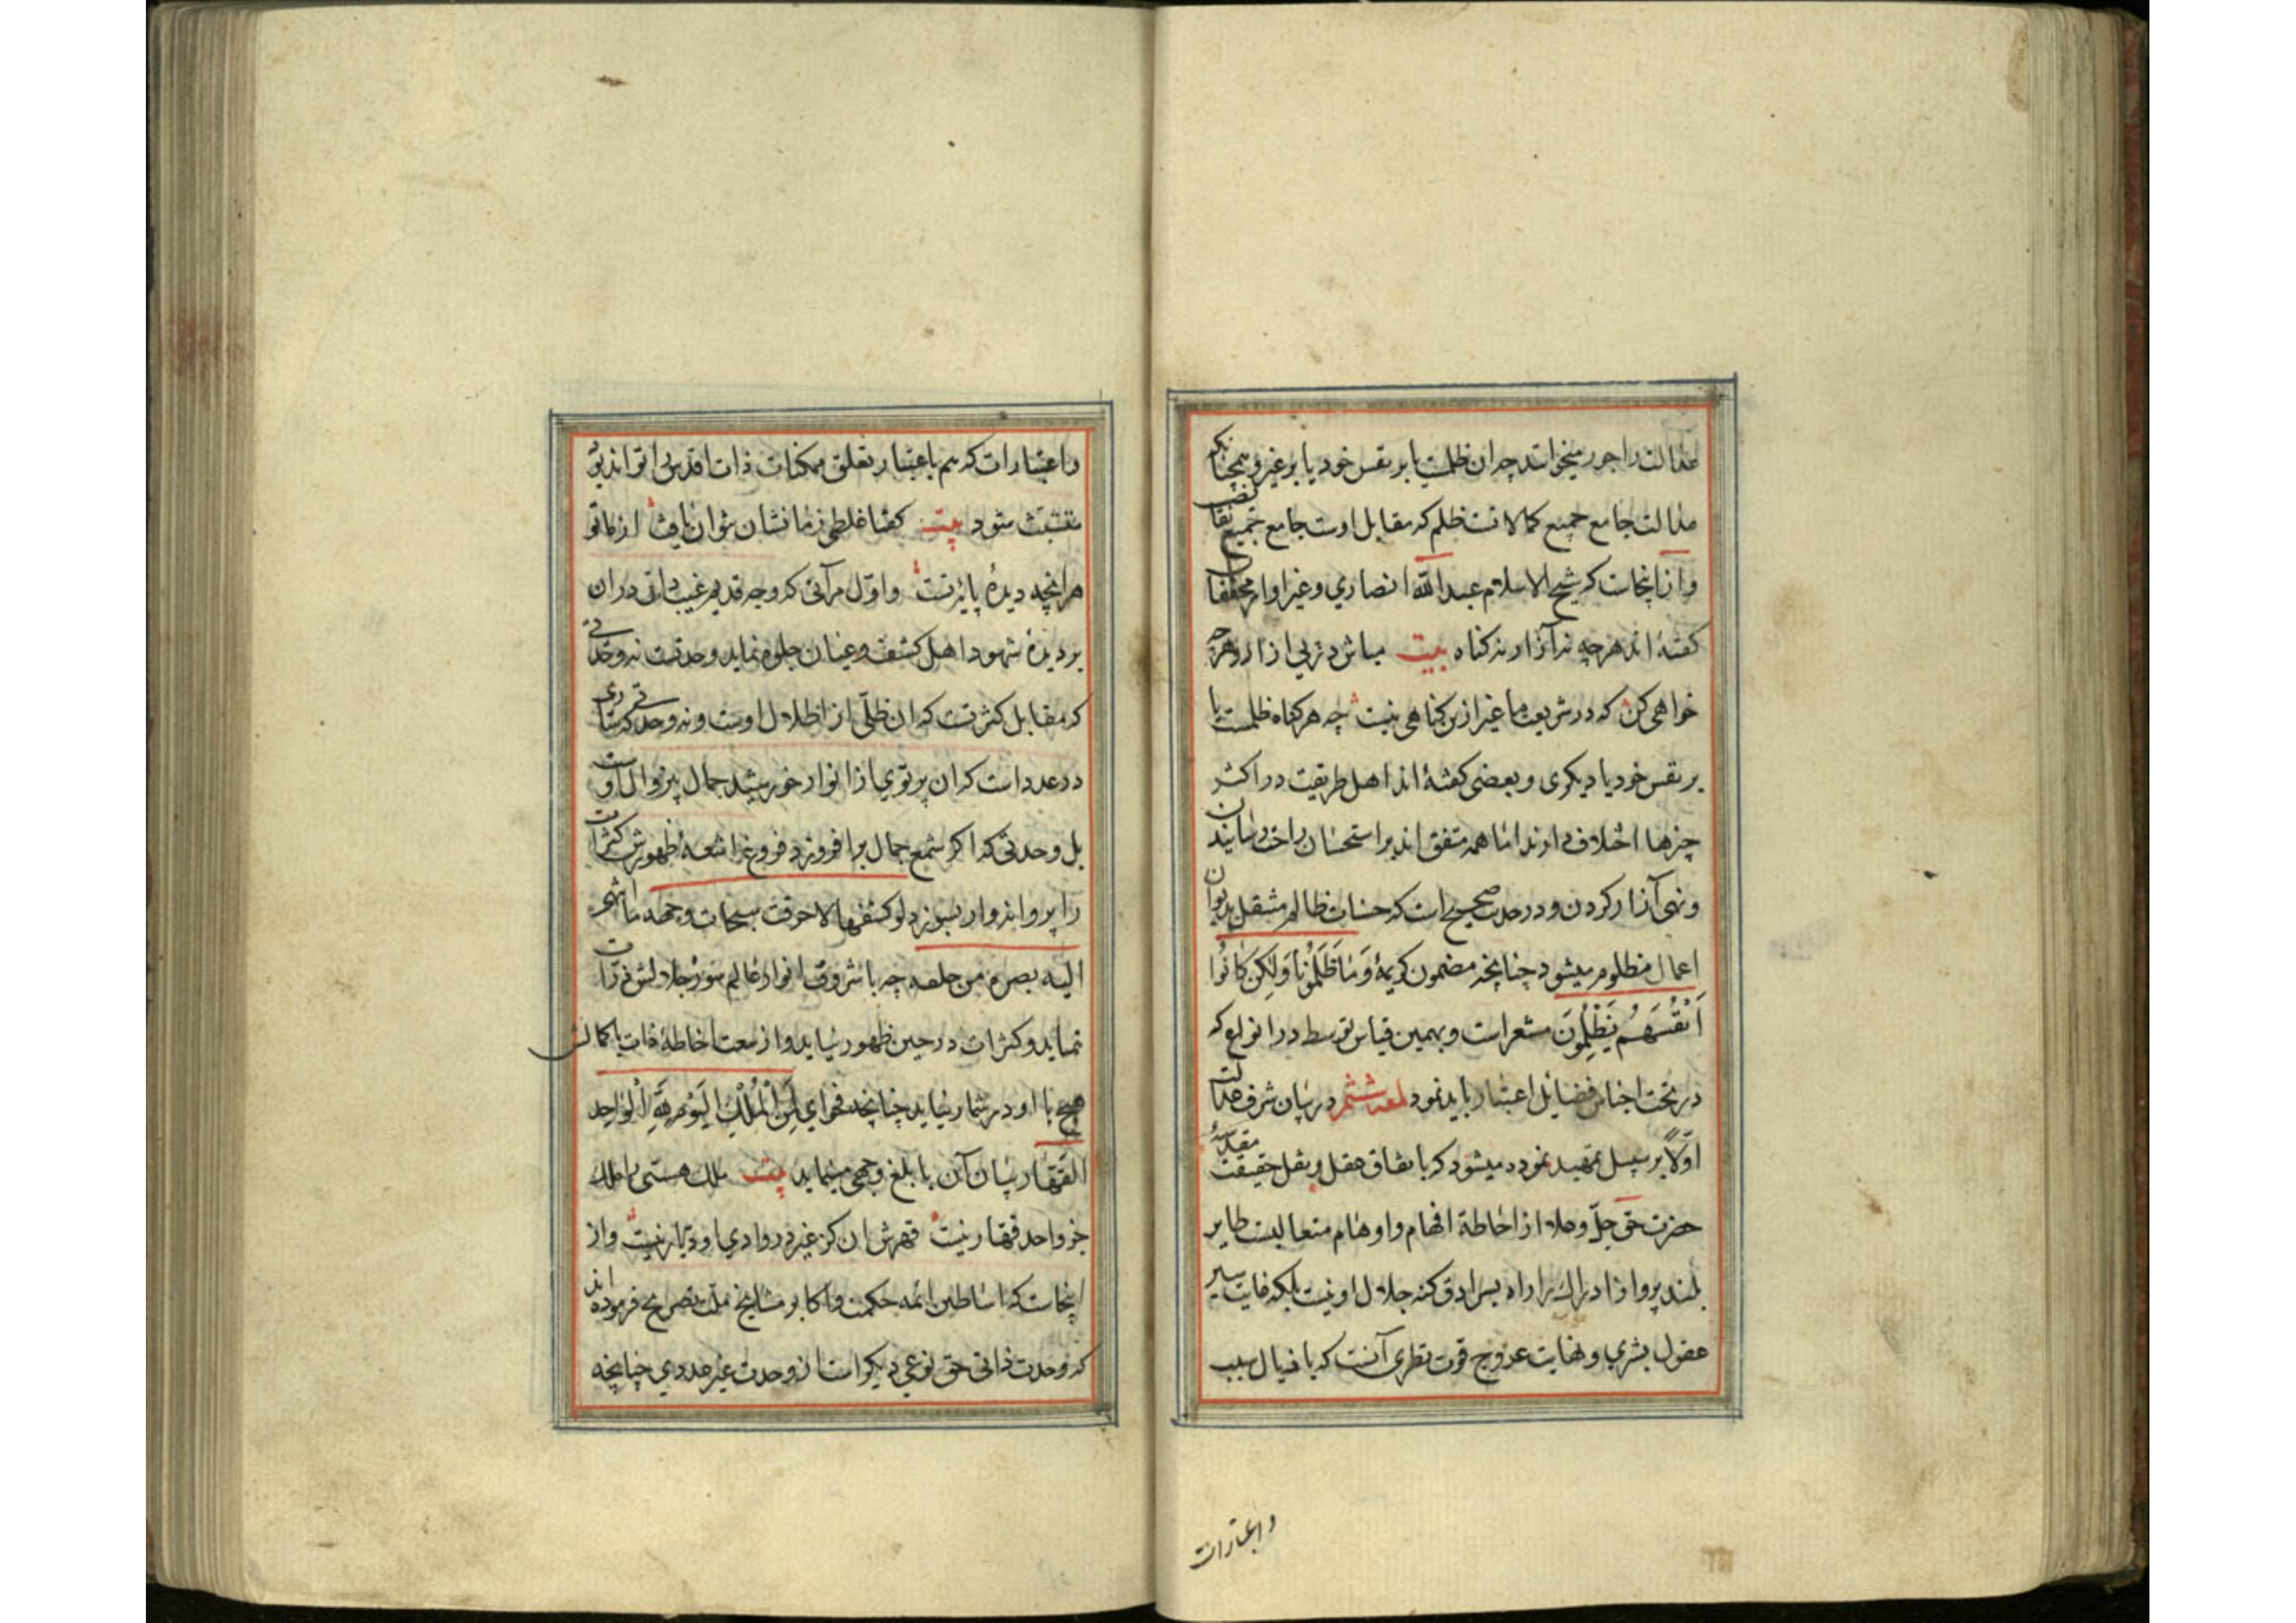 عدالت را جور میخوانند چه ان ظلمست یا بر نفس خود یا بر غیر و همچنانکه
عدالت جامع جمیع کمالاتست ظلم که مقابل اوست جامع جمیع نقایص
و از اینجاست که شیخ الاسلام عبدالله انصاری و غیر او از محققان
کفته اند هرچه نه آزار نه کناه بیت مباش در پی ازار و هرچه
خواهی کن که در شریعت ما غیر ازین کناهی نیست چه هر کناه ظلمست یا
بر نفس خود یا دیکری و بعضی کفته اند اهل طریقت در اکثر
چیزها اختلاف دارند اما همه متفق اند بر استحسان راحت رسانیدن
و نهی آزار کردن و در حدیث صحیح است که حسنات ظالم منتقل بدیوان
اعمال مظلوم میشود چنانچه مضمون کریمهٔ وَمَا ظَلَمُونَا وَلَكِن كَانُوا
أَنْفُسَهُمْ يَظْلِمُونَ مشعر است و بهمین قیاس توسط در انواع که
در تحت اجناس فضایل اعتبار باید نمود لمعه ششم در بیان شرف عدالت
اولاً بر سبیل تمهید نموده میشود که باتفاق عقل و نقل حقیقت مقدسهٔ
حضرت حق جلّ و علا از احاطهٔ افهام و اوهام متعالیست طایر
بلند پرواز ادراک را راه بسرادق کنه جلال او نیست بلکه غایت سیر
عقول بشری و نهایت عروج قوت نظری آنست که باذیال سبب
و اعتبارات
و اعتبارات که هم باعتبار تعلق ممکنات ذات اقدس را تواند بود
متشبث شود بیت کفتا غلطی ز ما نشان نتوان یافت از ما تو
هرانچه دیدهٔ پایهٔ تست و اوّل مرآتی که وجه قدیم غیب ذاتی دران
بر دیدهٔ شهود اهل کشف و عیان جلوه نماید وحدتست نه وحدتی
که مقابل کثرتست که ان ظلّی از اظلال اوست و نه وحدتی که ساری
در عدد است که ان پرتوی از انوار خورشید جمال بیزوال اوست
بل وحدتی که اکر شمع جمال برافروزد فروغ اشعهٔ ظهورش کثرات
را پروانه وار بسوزد لو کشفها لاحرقت سبحات وجهه ما انتهی
الیه بصره من خلقه چه با شروق انوار عالم سوز جلالش ذرّات
نماید و کثرات در حین ظهور نیاید و از سعت احاطهٔ ذات با کمالش
هیچ با او در شمار نیاید چنانچه فحوای لِمَنِ الْمُلْكُ الْيَوْمَ لِلَّهِ الْوَاحِدِ
الْقَهَّار بیان آن بابلغ وجهی مینماید بیت ملک هستی را ملک
جز واحد قهار نیست قهرش ان کز غیر در وادی او دیّار نیست و از
اینجاست که اساطین ائمه حکمت و اکابر مشایخ ملت تصریح فرموده اند
که وحدت ذاتی حق نوعی دیکر است از وحدت غیر عددی چنانچه